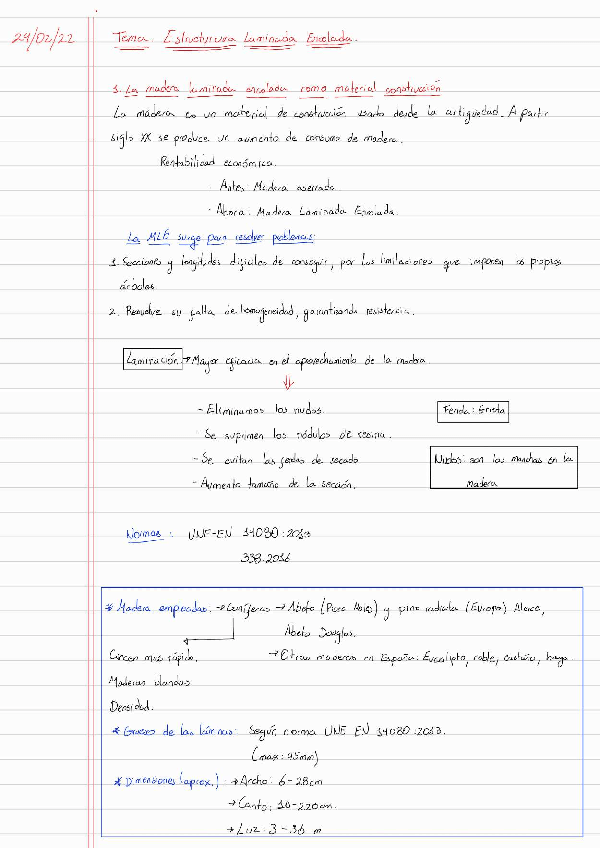 29/02/22
Tema: Estructura Laminada Encolada.
1. La madera laminada encolada como material construcción
La madera es un material de construcción usado desde la antigüedad. A partir
siglo XX se produce un aumento de consumo de madera.
Rentabilidad económica.
· Antes: Madera aserrada
· Ahora: Madera Laminada
La MLE surge para resolver problemas:
1. Secciones y longitudes difíciles de conseguir, por las limitaciones que imponen os propios
árboles.
2. Resuelve su falta de homogeneidad, garantizando resistencia.
Laminación → Mayor eficacia en el aprovechamiento de la madera.
⇓
- Eliminamos los nudos.
Fenda: Grieta
Se suprimen los nódulos de resina.
- Se evitan las fendas de secado
Nudos: son las manchas en la
madera
- Aumento tamaño de la sección.
Normas: UNE-EN 14080:2013
338:2016
* Madera empleadas. → Coníferas → Abeto (Picea Abies) y pino radiata (Europa) Alerce,
Abeto Douglas.
Crecen mas rápido.
→ Otras maderas en España: Eucalipto, roble, castaño, haya
Maderas blandas
Densidad.
* Grueso de las láminas: Según norma UNE EN 14080:2013.
(max: 45mm)
* Dimensiones (aprox.) → Ancho: 6-28cm
→ Canto: 10-220cm.
→ Luz: 3-36 m